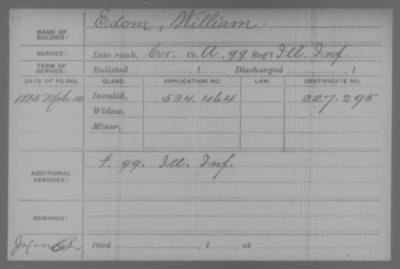 NAME OF SOLDIER: Edom, William.
SERVICE: Late rank, Cor. Co. A, 99 Reg't Ill. Inf.
TERM OF SERVICE: Enlisted , 1 Discharged , 1
DATE OF FILING. CLASS. APPLICATION NO. LAW. CERTIFICATE NO.
1885 Mch 10 Invalid, 534.464 327.295
Widow,
Minor,
ADDITIONAL SERVICES: F. 99. Ill. Inf.
REMARKS:
Died , 1 , at